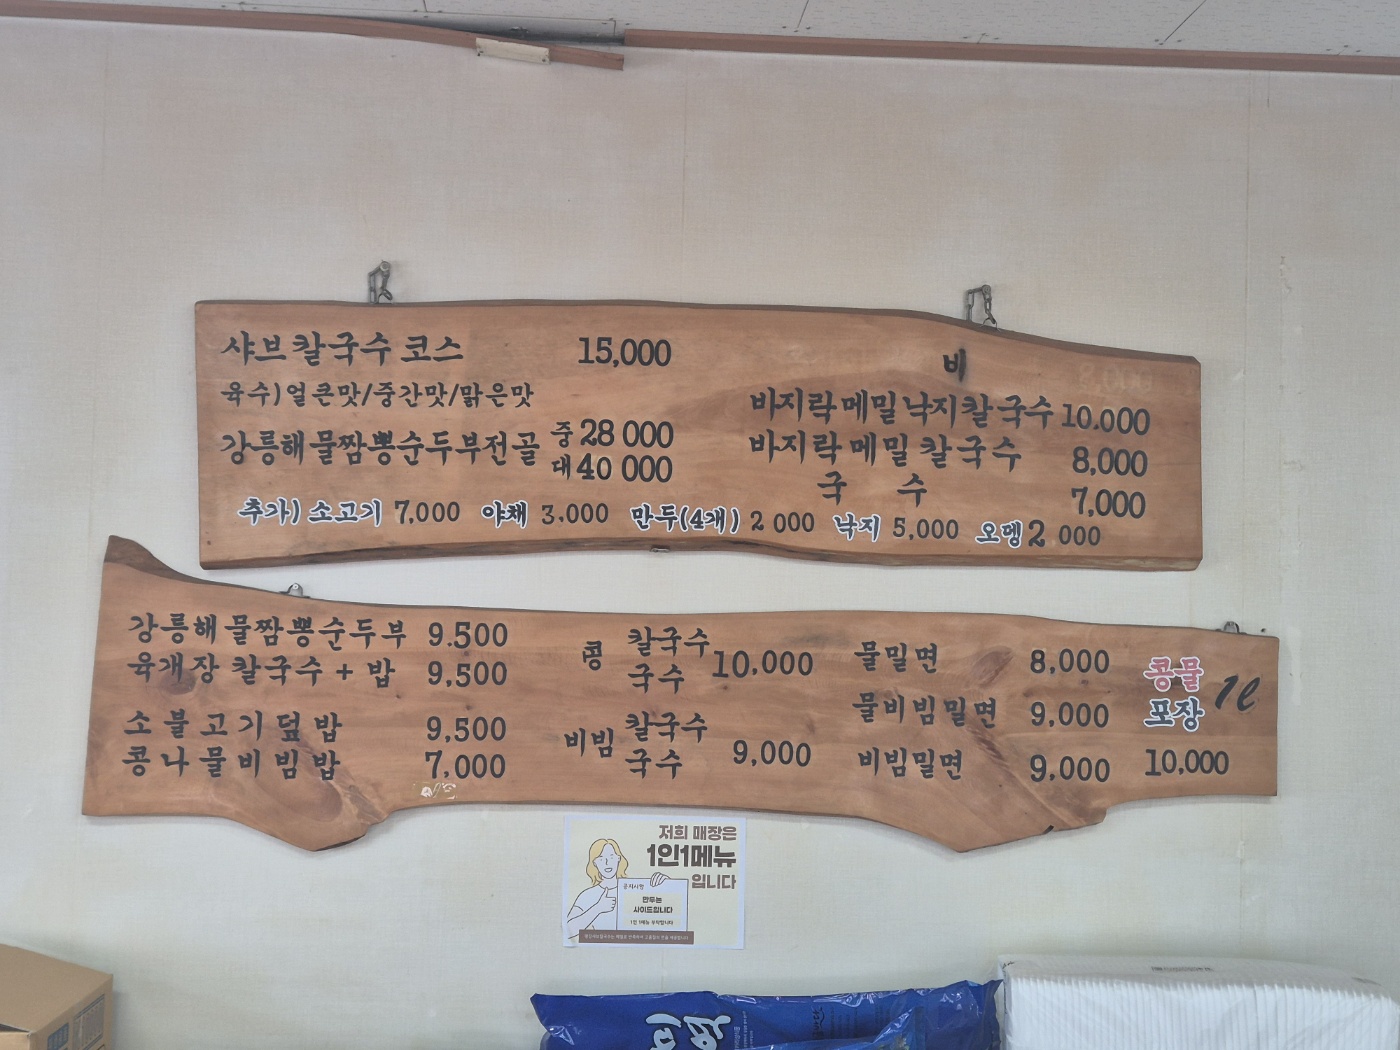 샤브칼국수 코스 15,000
육수)얼큰맛/중간맛/맑은맛
강릉해물짬뽕순두부전골 중 28 000
대 40 000
비
바지락메밀낙지칼국수 10.000
바지락메밀칼국수 8,000
국 수 7,000
추가) 소고기 7,000 야채 3.000 만두(4개) 2 000 낙지 5,000 오뎅 2 000
강릉해물짬뽕순두부 9.500
육개장 칼국수 + 밥 9,500
소불고기덮밥 9,500
콩나물비빔밥 7,000
콩 칼국수 국수 10,000
비빔 칼국수 국수 9,000
물밀면 8,000
물비빔밀면 9,000
비빔밀면 9,000
콩물 포장 1ℓ
10,000
저희 매장은
1인1메뉴
입니다
공지사항
만두는
사이드입니다
1인 1메뉴 부탁합니다